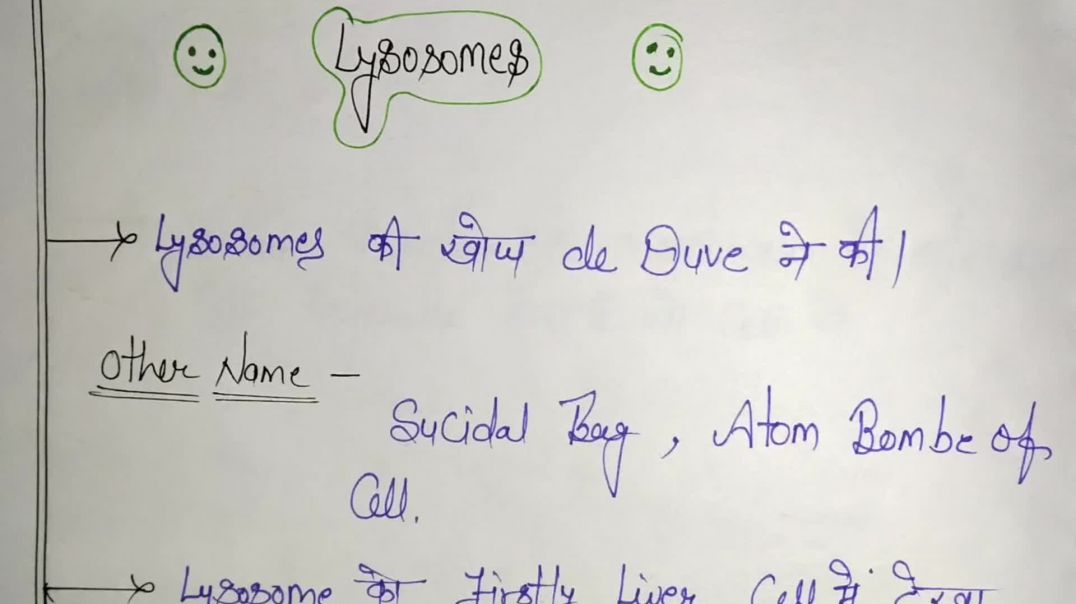 Lysosomes
Lysosomes की खोज de Duve ने की।
Other Name -
Sucidal Bag, Atom Bombe of
Cell.
Lysosome को Firstly Liver Cell में देखा